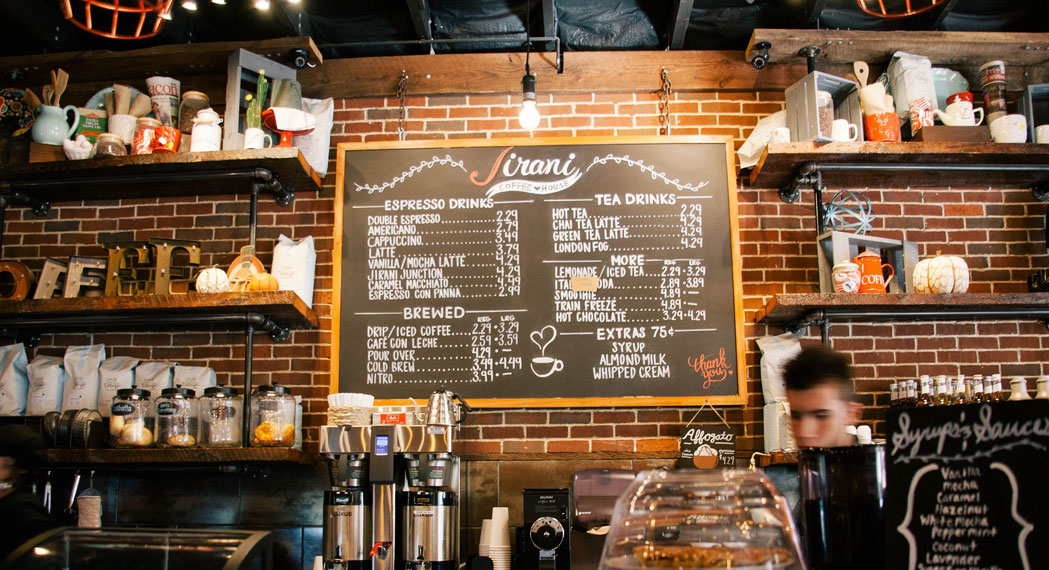 Jirani
COFFEE HOUSE
ESPRESSO DRINKS
DOUBLE ESPRESSO 2.29
AMERICANO 2.79
CAPPUCCINO 3.49
LATTE 3.79
VANILLA/MOCHA LATTE 4.49
JIRANI JUNCTION 4.49
CARAMEL MACCHIATO 4.49
ESPRESSO CON PANNA 2.99
BREWED
REG LRG
DRIP/ICED COFFEE 2.29 • 3.29
CAFÉ CON LECHE 2.59 • 3.59
POUR OVER 4.29 • —
COLD BREW 3.49 • 4.49
NITRO 3.99 • —
TEA DRINKS
HOT TEA 2.29
CHAI TEA LATTE 4.29
GREEN TEA LATTE 4.29
LONDON FOG 4.29
MORE
REG LRG
LEMONADE/ICED TEA 2.29 • 3.29
SODA 2.89 • 3.89
SMOOTHIE 4.89 • —
TRAIN FREEZE 4.89 • —
HOT CHOCOLATE 3.29 • 4.29
EXTRAS 75¢
SYRUP
ALMOND MILK
WHIPPED CREAM
thank you!
Affogato
$4.29
Syrups & Sauces
Vanilla
mocha
Caramel
Hazelnut
White mocha
Peppermint
Coconut
Lavender